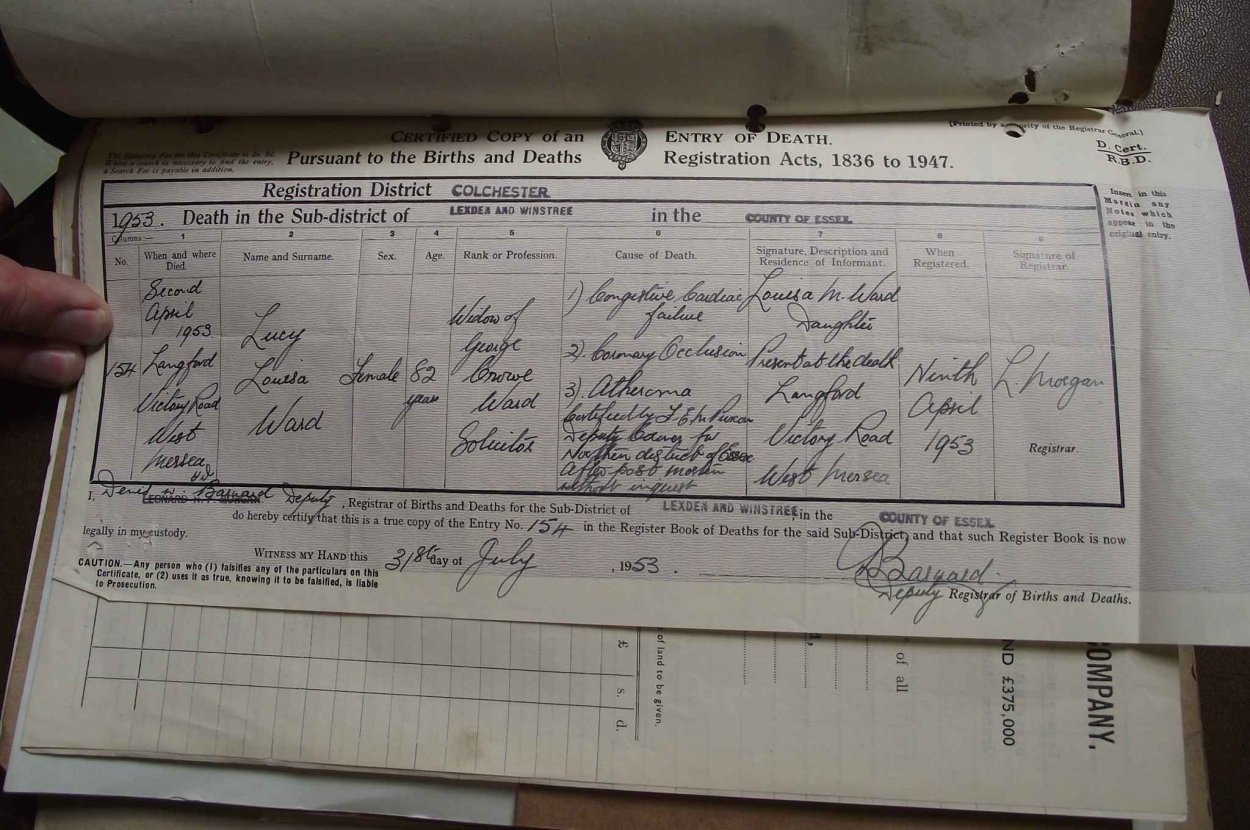 CERTIFIED COPY of an ENTRY OF DEATH.
[Printed by authority of the Registrar General.]
The Statutory Fee for this Certificate is 3s. 9d.
Where a search is necessary to find the entry,
a Search Fee is payable in addition.
Pursuant to the Births and Deaths Registration Acts, 1836 to 1947.
D. Cert.
R.B.D.
Registration District COLCHESTER
1953. Death in the Sub-district of LEXDEN AND WINSTREE in the COUNTY OF ESSEX
Insert in this
Margin any
Notes which
appear in the
original entry.
Columns:— 1 2 3 4 5 6 7 8 9
No.
When and where
Died.
Name and Surname.
Sex.
Age.
Rank or Profession.
Cause of Death.
Signature, Description and
Residence of Informant.
When
Registered.
Signature of
Registrar.
154
Second
April
1953
Langford
Victory Road
West
Mersea
U.D.
Lucy
Louisa
Ward
Female
82
years
Widow of
George
Crowe
Ward
Solicitor
1) Congestive Cardiac
failure
2). Coronary Occlusion
3). Atheroma
Certified by
Deputy Coroner for
Northern district of Essex
After post mortem
without inquest
Louisa M. Ward
Daughter
Present at the death
Langford
Victory Road
West Mersea
Ninth
April
1953
L. Morgan
Registrar.
I, Denis W. Barnard Deputy, Registrar of Births and Deaths for the Sub-District of LEXDEN AND WINSTREE, in the COUNTY OF ESSEX
do hereby certify that this is a true copy of the Entry No. 154 in the Register Book of Deaths for the said Sub-District, and that such Register Book is now
legally in my custody.
WITNESS MY HAND this 31st day of July, 1953.
CAUTION.—Any person who (1) falsifies any of the particulars on this
Certificate, or (2) uses it as true, knowing it to be falsified, is liable
to Prosecution.
Barnard.
Deputy Registrar of Births and Deaths.
£ s. d.
of land to be given.
of all
ND £375,000
COMPANY.